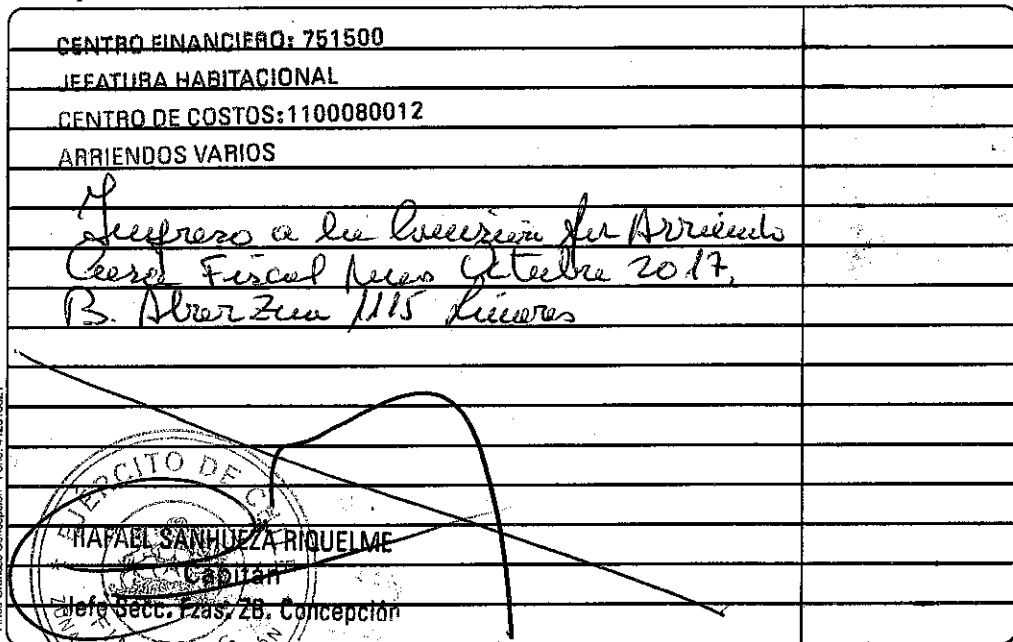 CENTRO FINANCIERO: 751500
JEFATURA HABITACIONAL
CENTRO DE COSTOS:1100080012
ARRIENDOS VARIOS
Ingreso a la Comisión por Arriendo
Casa Fiscal mes Octubre 2017,
B. 1115 Linares
EJÉRCITO DE
RAFAEL SANHUEZA RIQUELME
Capitán
Jefe Secc. Fzas. ZB. Concepción